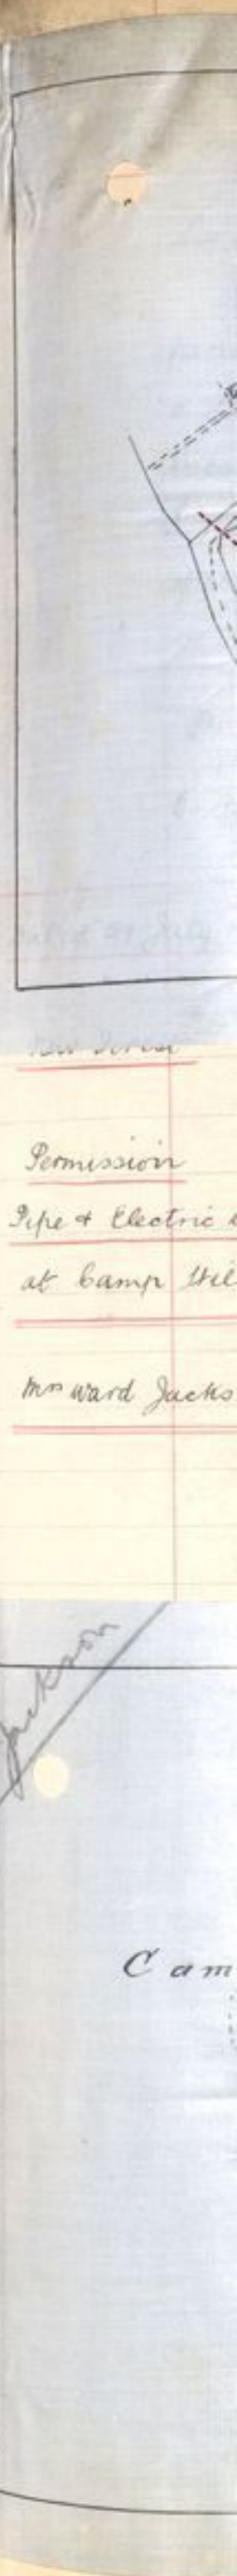 Permission
Pipe & Electric
at Camp
Mrs Ward Jacks
Jackson
Cam